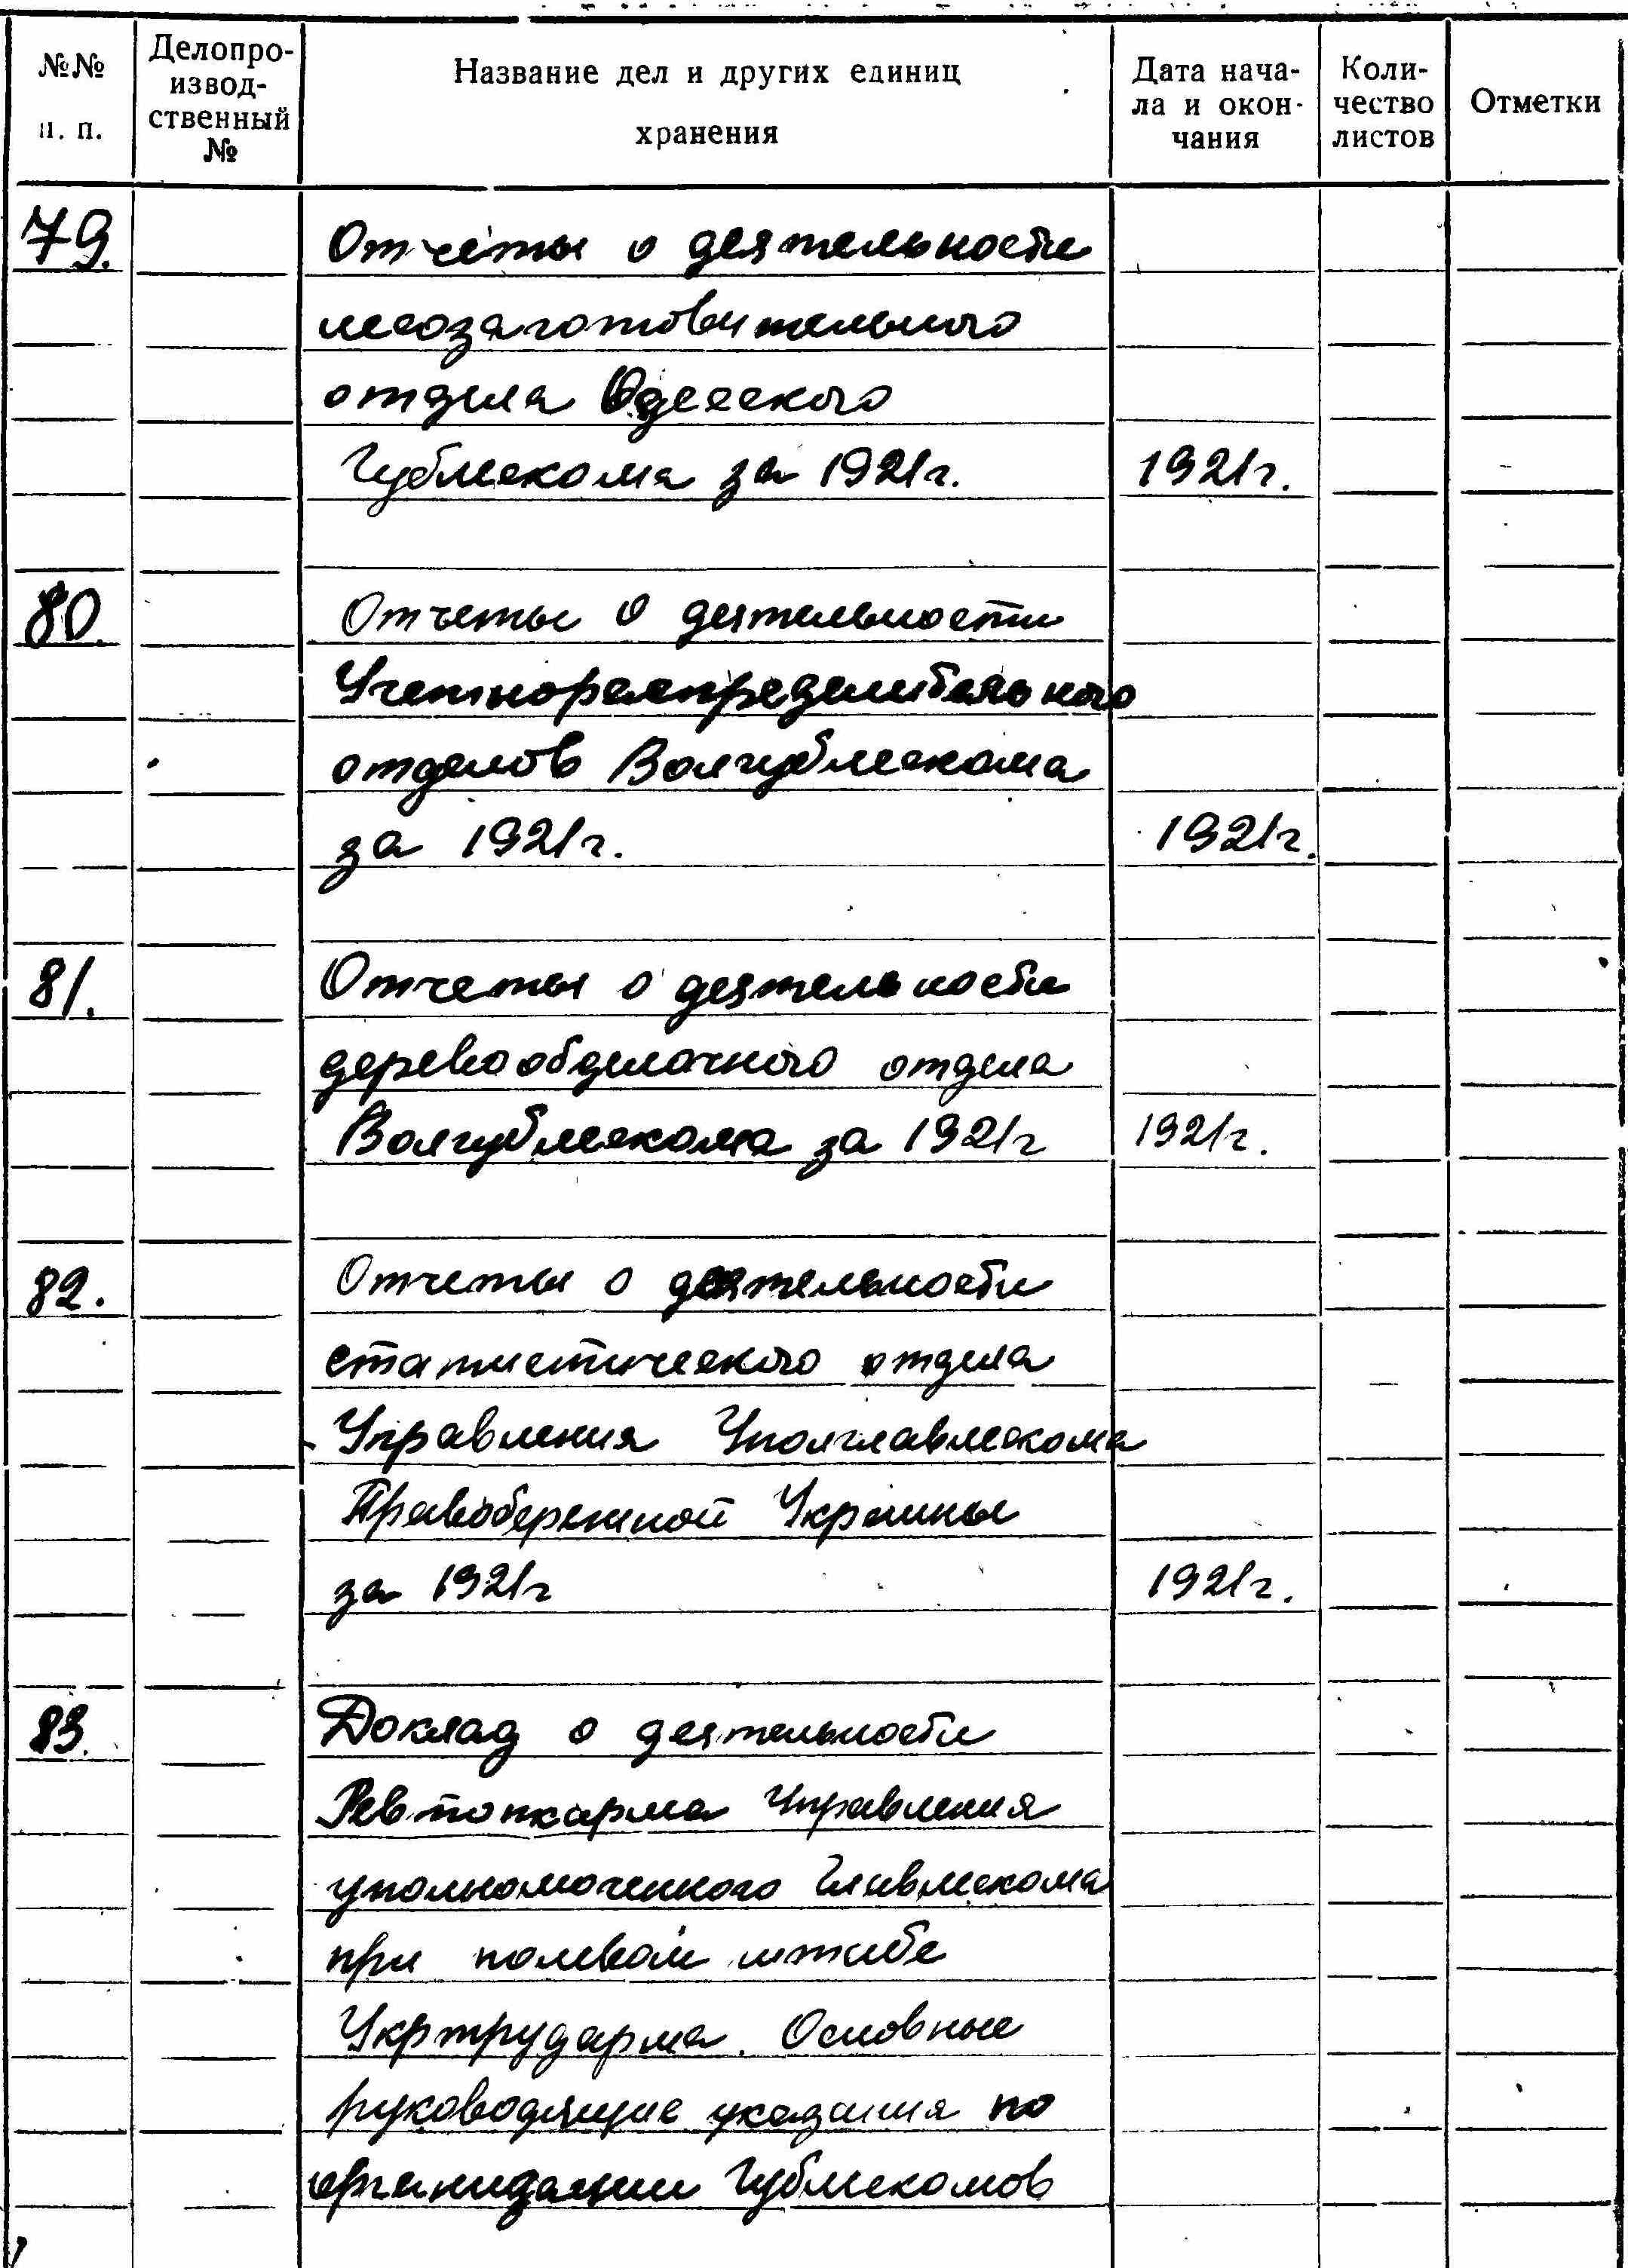 №№ п. п.
Делопро-
извод-
ственный
№
Название дел и других единиц
хранения
Дата нача-
ла и окон-
чания
Коли-
чество
листов
Отметки
79. Отчеты о деятельности
лесозаготовительного
отдела Одесского
Гублескома за 1921г. 1921г.
80. Отчеты о деятельности
Учетнораспределительного
отделов Волгублескома
за 1921г. 1921г.
81. Отчеты о деятельности
деревообделочного отдела
Волгублескома за 1921г 1921г.
82. Отчеты о деятельности
статистического отдела
Управления Уполглавлескома
Правобережной Украины
за 1921г 1921г.
83. Доклад о деятельности
Ревтопкарма Управления
уполномоченного Главлескома
при полевом штабе
Укртрударма. Основные
руководящие указания по
организации Гублескомов